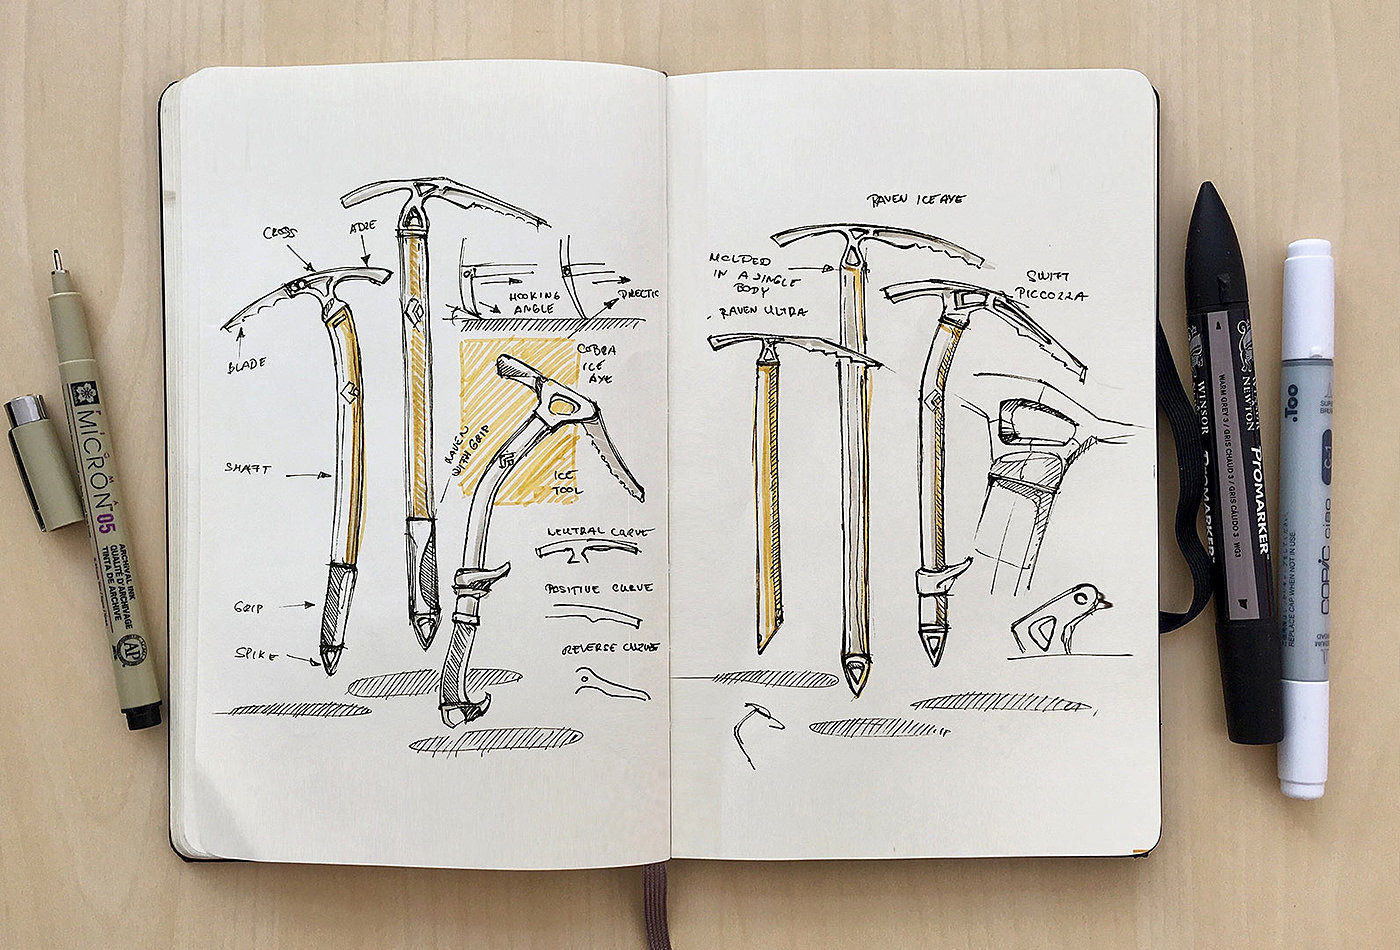 CROSS
ADZE
BLADE
SHAFT
GRIP
SPIKE
HOOKING
ANGLE
DIRECTIO
COBRA
ICE
AXE
RAVEN
WITH GRIP
ICE
TOOL
NEUTRAL CURVE
POSITIVE CURVE
REVERSE CURVE
RAVEN ICE AXE
MOLDED
IN A SINGLE
BODY
RAVEN ULTRA
SWIFT
PICCOZZA
MICRON 05
ARCHIVAL INK
QUALITÉ D'ARCHIVAGE
TINTA DE ARCHIVE
AP
WINSOR
NEWTON
PROMARKER
PROMARKER
WARM GREY 3 / GRIS CHAUD 3 / GRIS CALIDO 3 WG3
.Too
COPIC ciao
REPLACE CAP WHEN NOT IN USE